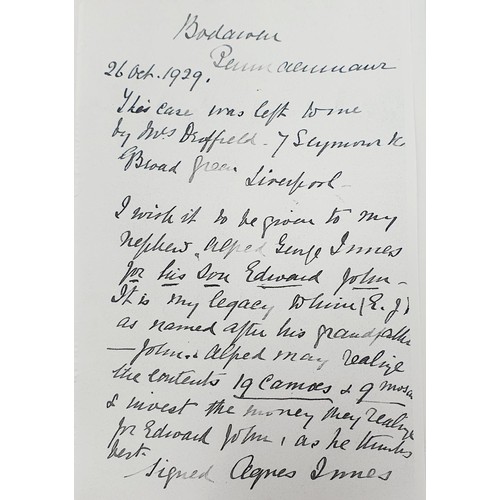 Bodawen
Penmaenmawr
26 Oct. 1929.
This case was left to me
by Mrs Driffield. 7 Seymour
Broad Green
Liverpool -
I wish it to be given to my
nephew Alfred George Innes
for his Son Edward John -
It is my legacy to him (E. J)
as named after his grandfather
- John. Alfred may realize
the contents 19 Cameos & 9 mosa
& invest the money they realize
for Edward John, as he thinks
best.
Signed Agnes Innes